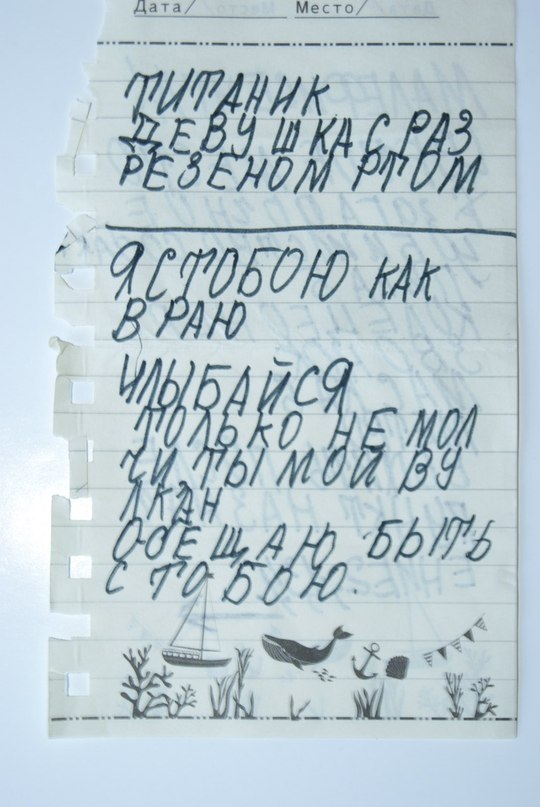 Дата/ Место/
ТИТАНИК
ДЕВУШКА С РАЗ
РЕЗЕНОМ РТОМ
Я СТОБОЮ КАК
В РАЮ
УЛЫБАЙСЯ
ТОЛЬКО НЕ МОЛ
ЧИ ТЫ МОЙ ВУ
ЛКАН
ОБЕЩАЮ БЫТЬ
С ТОБОЮ.